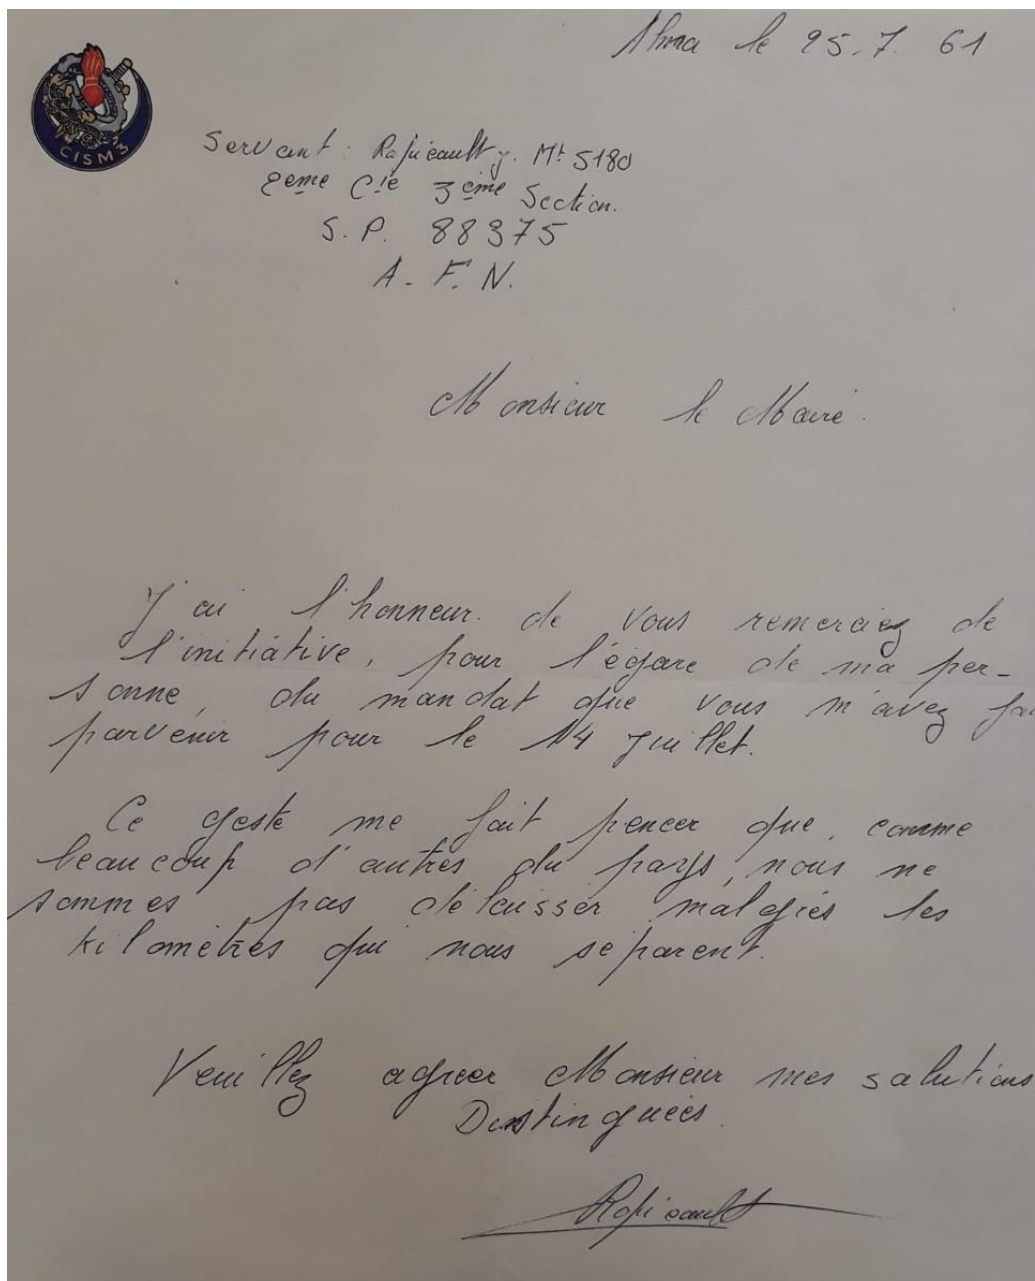 Alma le 25.7.61
CISM3
Servant : Rapicault j. Mt 5180
2eme Cie 3eme Section.
S.P. 88375
A.F.N.
Monsieur le Maire.
J'ai l'honneur de vous remerciez de
l'initiative, pour l'égare de ma per-
sonne, du mandat que vous m'avez fai
parvenir pour le 14 Juillet.
Ce geste me fait pencer que, comme
beaucoup d'autres du pays, nous ne
sommes pas délaisser malgrés les
kilomètres qui nous séparent.
Veuillez agréer Monsieur mes salutions
Distinguées.
Rapicault